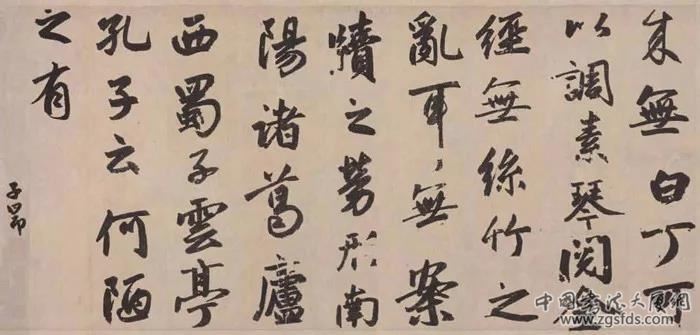 来無白丁可
以調素琴閱金
經無絲竹之
亂耳無案
牘之勞形南
陽諸葛廬
西蜀子雲亭
孔子云何陋
之有
子昂
www.zgsfds.com